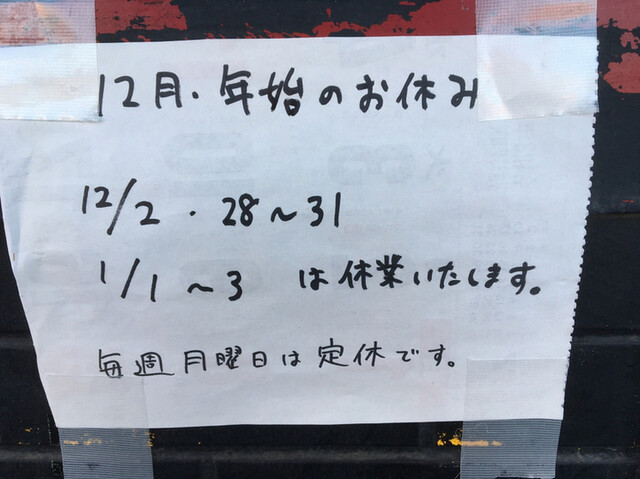 12月・年始のお休み
12/2・28〜31
1/1〜3 は休業いたします。
毎週月曜日は定休です。